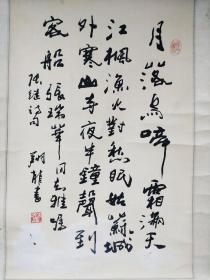 月落烏啼霜滿天
江楓漁火對愁眠姑蘇城
外寒山寺夜半鐘聲到
客船 張瑞峯同志雅鳴
張继詩句 翔龍書